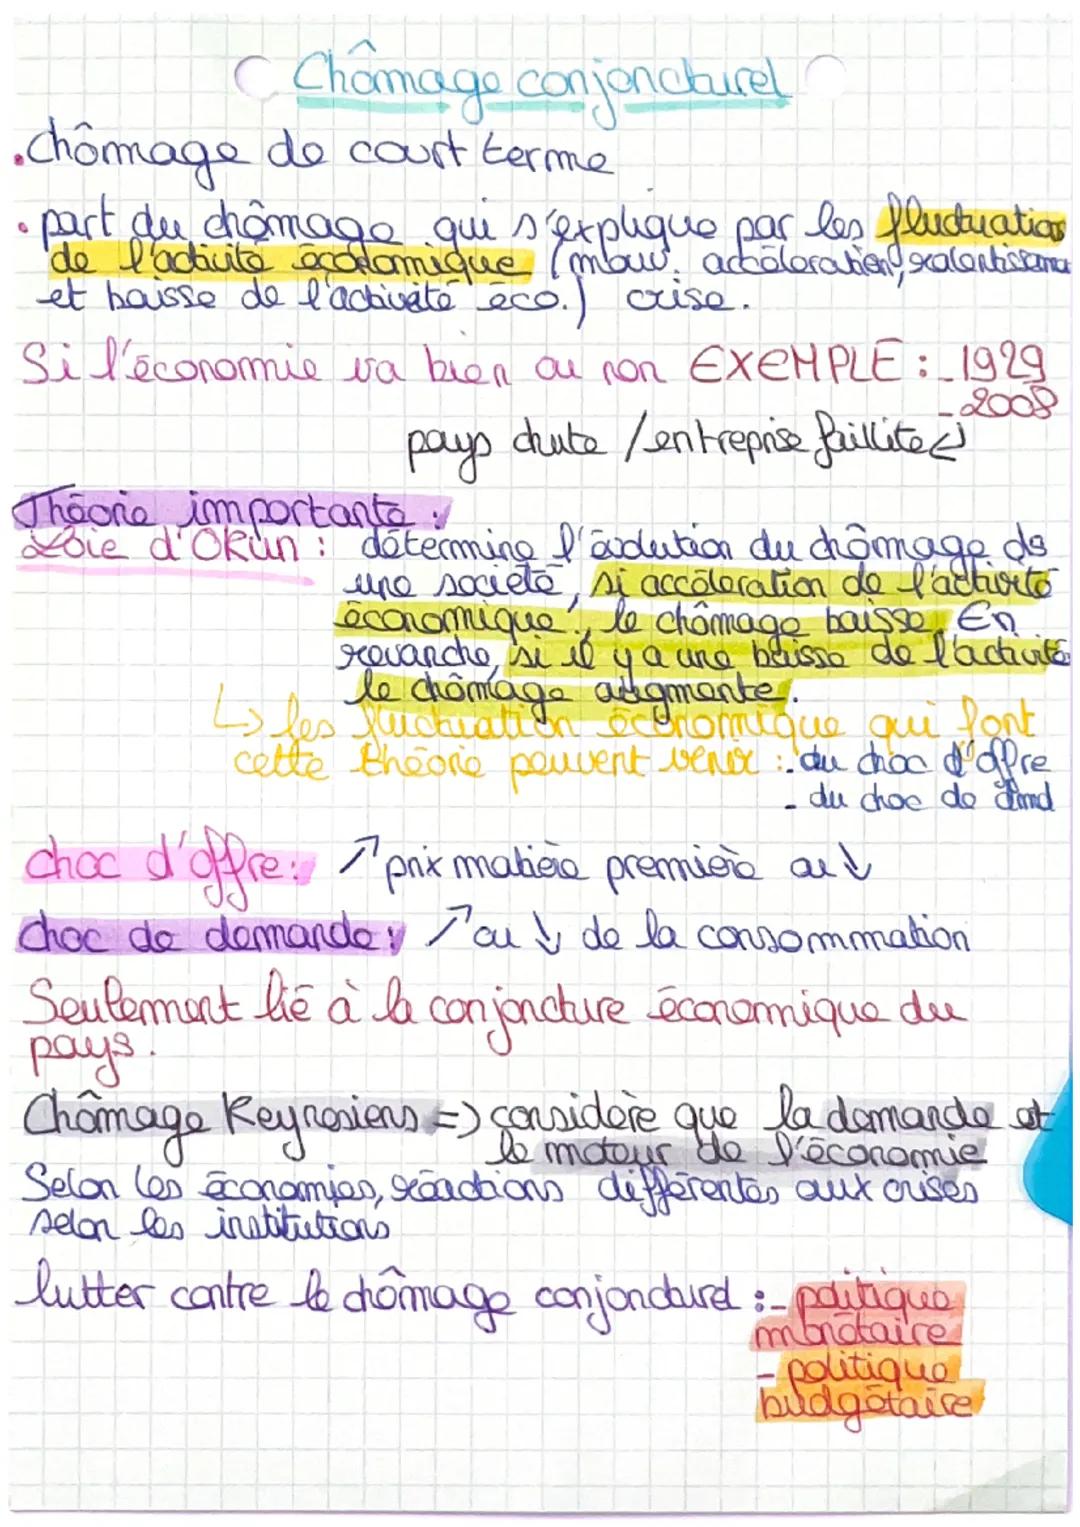 Chômage conjoncturel
• Chômage de court terme
• part du chômage qui s'explique par les fluctuation
de l'activité économique (mouv. accéleration, ralantissema
et baisse de l'activité éco.) crise.
Si l'économie va bien ou non EXEMPLE : - 1929
- 2008
pays chute / entreprise faillite ↲
Théorie importante :
Loie d'Okun : détermine l'évolution du chômage ds
une société, si accéleration de l'activité
économique, le chômage baisse. En
revanche, si il y a une baisse de l'activité
le chômage augmente.
↳ les fluctuation économique qui font
cette théorie peuvent venir : - du choc d'offre
- du choc de dmd
choc d'offre : ↗ prix matière première ou ↓
choc de demande : ↗ ou ↓ de la consommmation
Seulement lié à la conjoncture économique du
pays.
Chômage Keynesiens => considère que la demande et
le moteur de l'économie
Selon les économies, réactions différentes aux crises
selon les institutions
lutter contre le chômage conjoncturel : - politique
monétaire
- politique
budgétaire